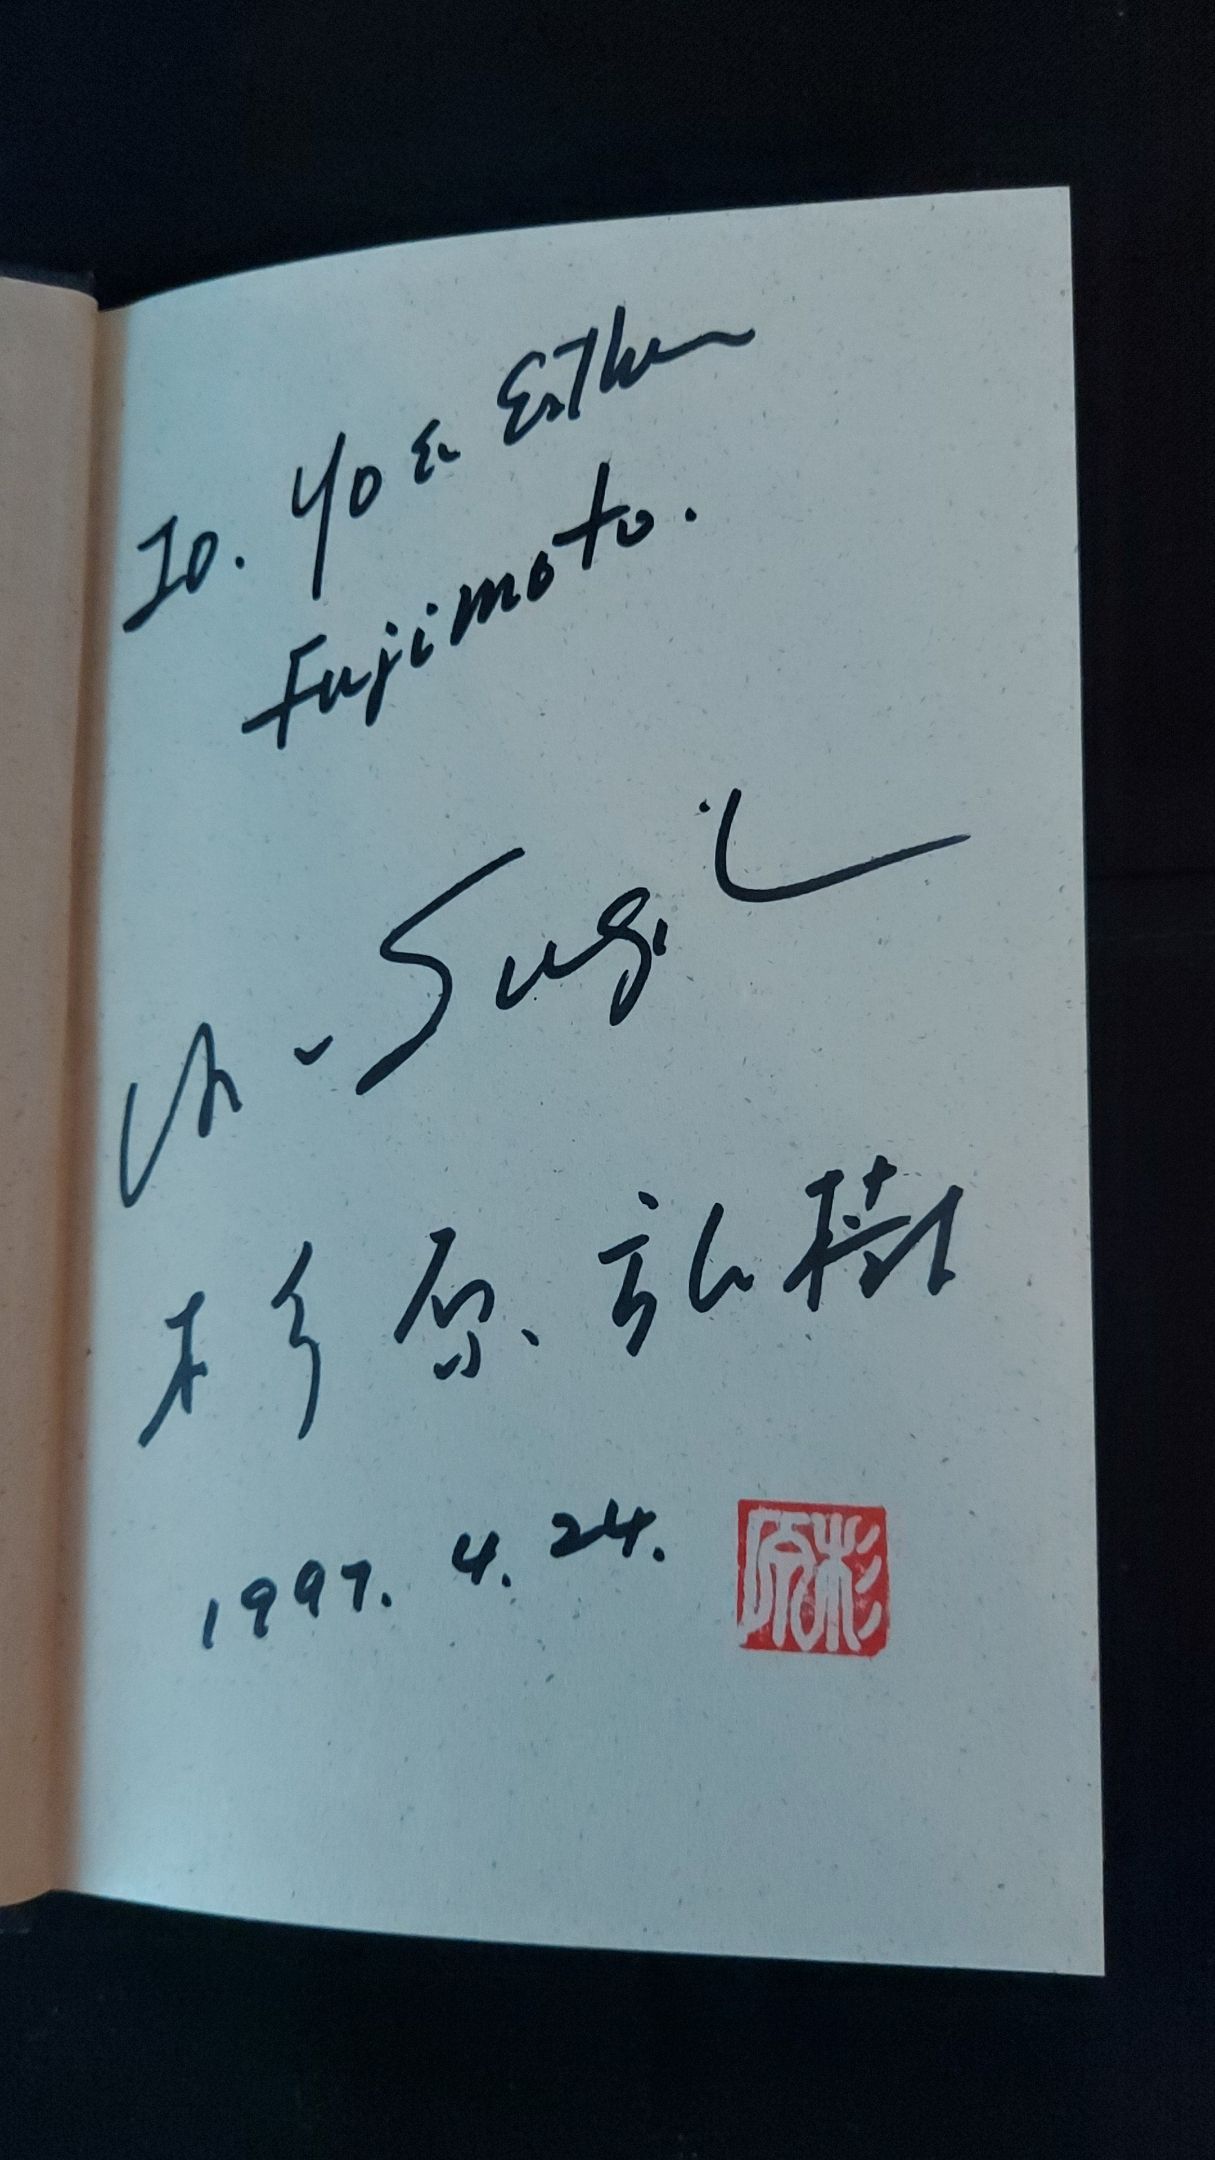 To. Yo & Esther
Fujimoto.
H. Sugi
杉原弘樹
1997. 4. 24.
杉原